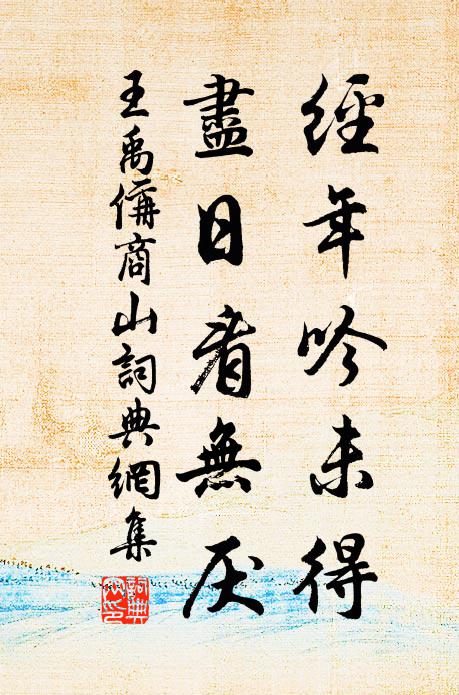 經年吟未得
盡日看無厌
王禹偁商山詞典網集